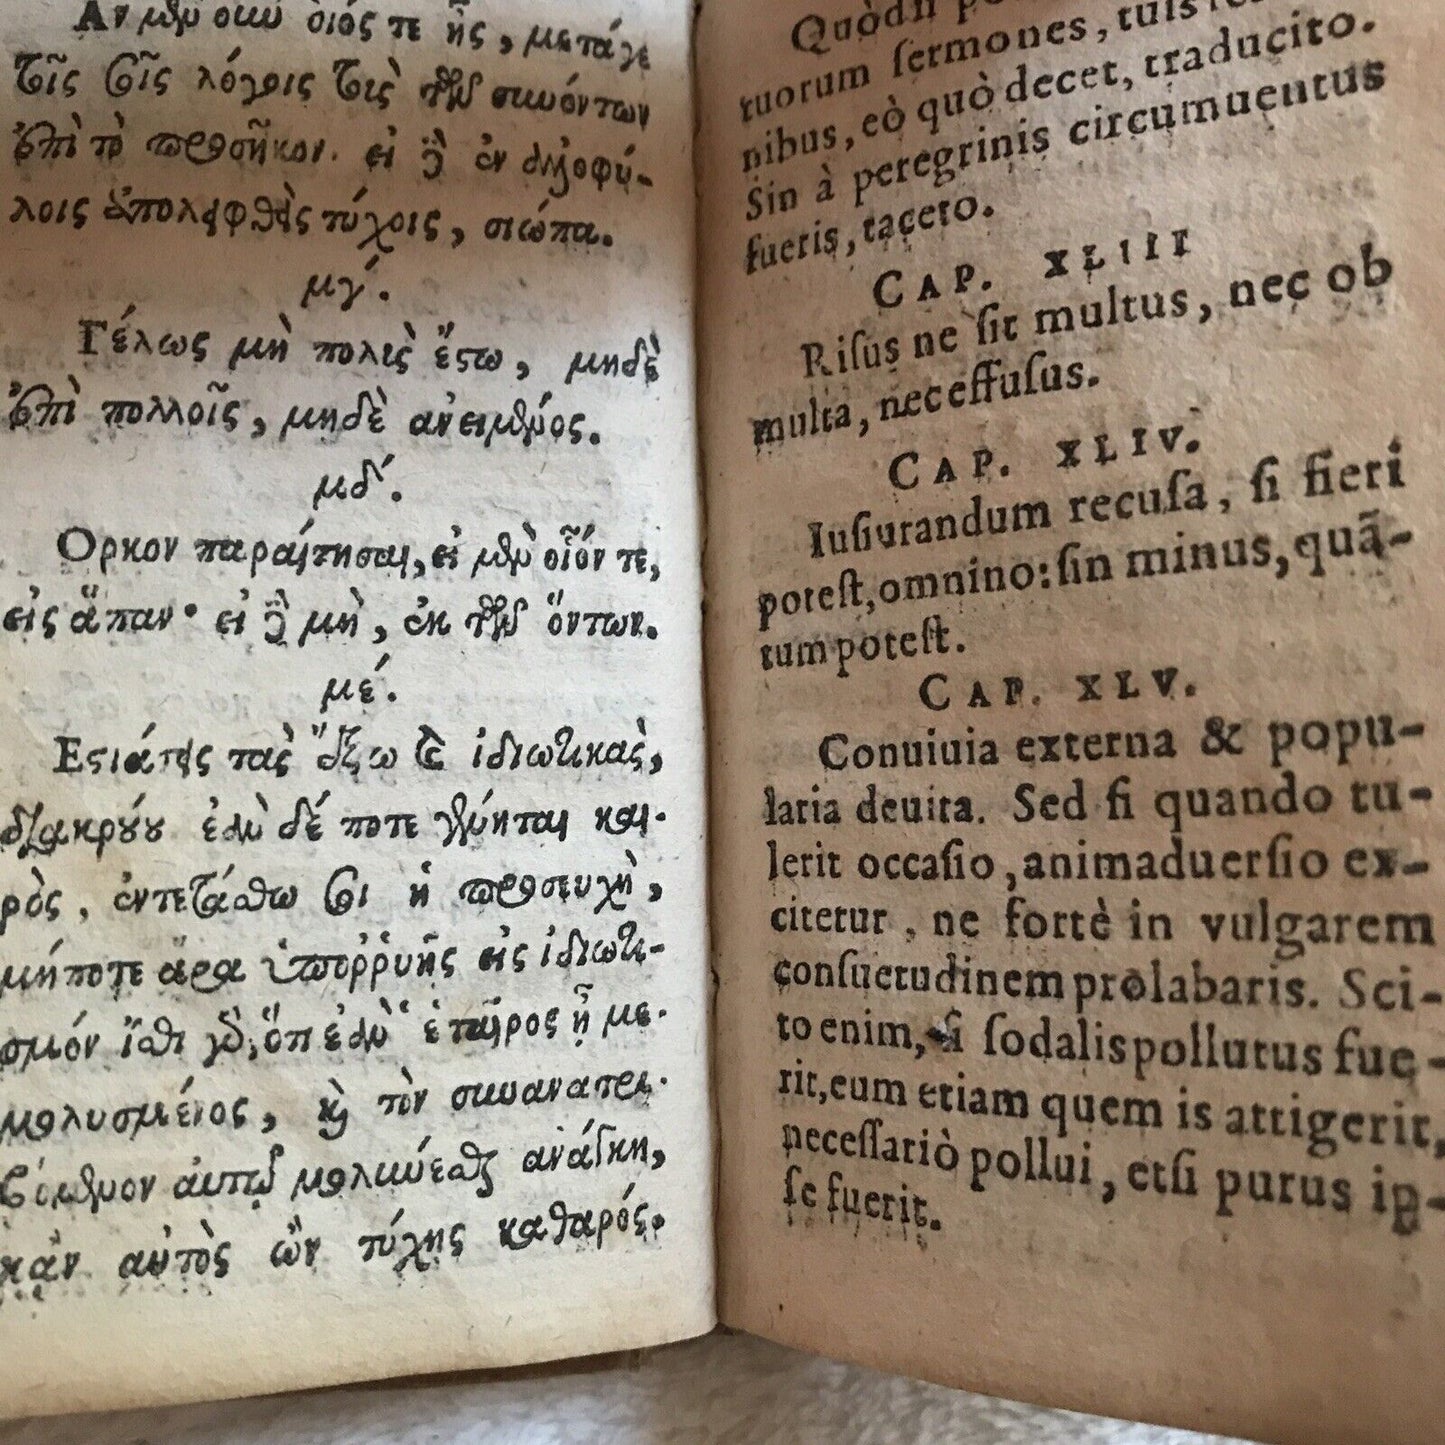 Ἂν μὲν οὖν οἷός τε ᾖς, μετάγε
τοῖς σοῖς λόγοις τοὺς τῶν συνόντων
ἐπὶ τὸ προσῆκον. εἰ δὲ ἐν ἀλλοφύ-
λοις ἀποληφθεὶς τύχοις, σιώπα.
μγʹ.
Γέλως μὴ πολὺς ἔστω, μηδὲ
ἐπὶ πολλοῖς, μηδὲ ἀνειμένος.
μδʹ.
Ορκον παραίτησαι, εἰ μὲν οἷόν τε,
εἰς ἅπαν· εἰ δὲ μὴ, ἐκ τῶν ὄντων.
μέ.
Εστιάσεις τὰς ἔξω καὶ ἰδιωτικὰς,
διακρούου ἐὰν δέ ποτε γένηται και-
ρὸς, ἐντετάσθω σοι ἡ προσευχὴ,
μήποτε ἄρα ὑποῤῥυῇς εἰς ἰδιωτι-
σμόν ἴσθι γὰρ, ὅτι ἐὰν ὁ ἑταῖρος ᾖ με-
μολυσμένος, καὶ τὸν συνανατρι-
βόμενον αὐτῷ μολύνεσθαι ἀνάγκη,
κἂν αὐτὸς ὢν τύχῃς καθαρός.
Quòd si
tuorum ſermones, tuis
nibus, eò quò decet, traducito.
Sin à peregrinis circumuentus
fueris, tacero.
CAP. XLIII
Riſus ne ſit multus, nec ob
multa, nec effuſus.
CAP. XLIV.
Iuſiurandum recuſa, ſi fieri
poteſt, omnino: ſin minus, quã-
tum poteſt.
CAP. XLV.
Conuiuia externa & popu-
laria deuita. Sed ſi quando tu-
lerit occaſio, animaduerſio ex-
citetur, ne fortè in vulgarem
conſuetudinem prolabaris. Sci-
to enim, ſi ſodalis pollutus fue-
rit, eum etiam quem is attigerit,
neceſſariò pollui, etſi purus ip-
ſe fuerit.